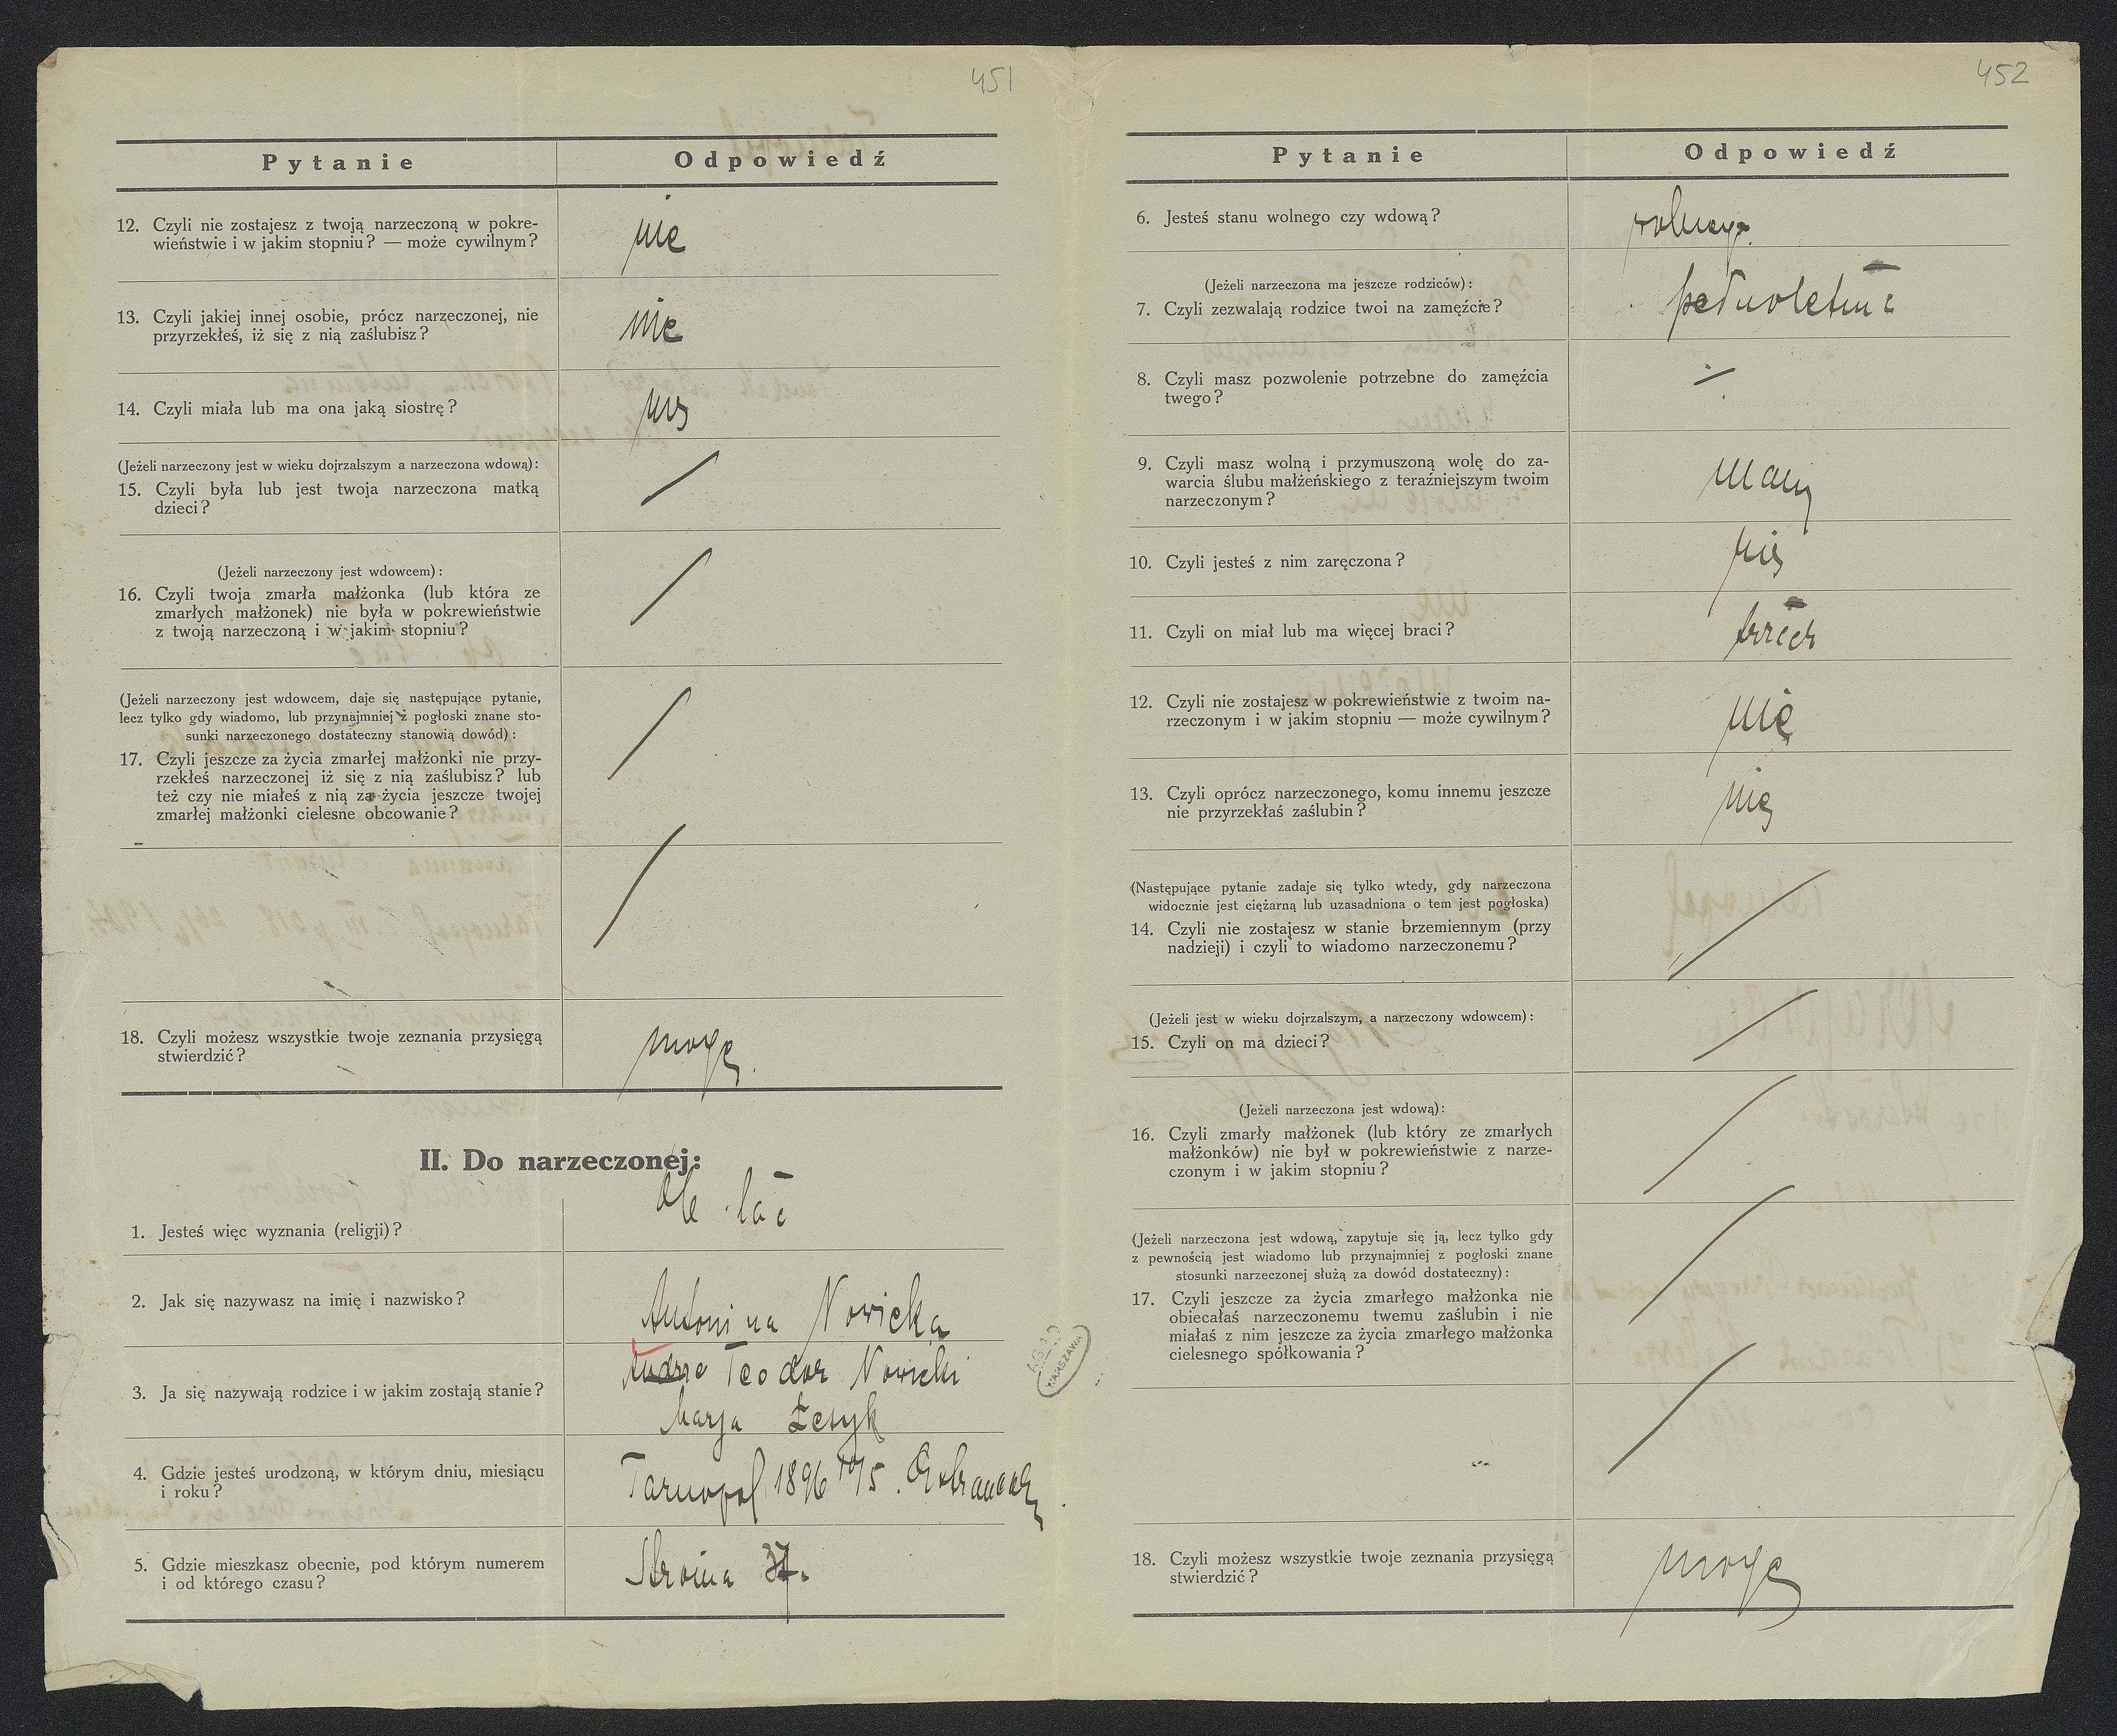 451
Pytanie Odpowiedź
12. Czyli nie zostajesz z twoją narzeczoną w pokre-
wieństwie i w jakim stopniu? — może cywilnym?
nie
13. Czyli jakiej innej osobie, prócz narzeczonej, nie
przyrzekłeś, iż się z nią zaślubisz?
nie
14. Czyli miała lub ma ona jaką siostrę?
(Jeżeli narzeczony jest w wieku dojrzalszym a narzeczona wdową):
15. Czyli była lub jest twoja narzeczona matką
dzieci?
(Jeżeli narzeczony jest wdowcem):
16. Czyli twoja zmarła małżonka (lub która ze
zmarłych małżonek) nie była w pokrewieństwie
z twoją narzeczoną i w jakim stopniu?
(Jeżeli narzeczony jest wdowcem, daje się następujące pytanie,
lecz tylko gdy wiadomo, lub przynajmniej z pogłoski znane sto-
sunki narzeczonego dostateczny stanowią dowód):
17. Czyli jeszcze za życia zmarłej małżonki nie przy-
rzekłeś narzeczonej iż się z nią zaślubisz? lub
też czy nie miałeś z nią za życia jeszcze twojej
zmarłej małżonki cielesne obcowanie?
18. Czyli możesz wszystkie twoje zeznania przysięgą
stwierdzić?
mogę.
II. Do narzeczonej:
1. Jesteś więc wyznania (religji)?
łać
2. Jak się nazywasz na imię i nazwisko?
Antonina Nowicka
3. Ja się nazywają rodzice i w jakim zostają stanie?
Teodor Nowicki
Marja
4. Gdzie jesteś urodzoną, w którym dniu, miesiącu
i roku?
Tarnopol 1896 10/5.
5. Gdzie mieszkasz obecnie, pod którym numerem
i od którego czasu?
37.
WARSZAWA
452
Pytanie Odpowiedź
6. Jesteś stanu wolnego czy wdową?
wolnego.
(Jeżeli narzeczona ma jeszcze rodziców):
7. Czyli zezwalają rodzice twoi na zamęźcie?
pełnoletnia
8. Czyli masz pozwolenie potrzebne do zamęźcia
twego?
9. Czyli masz wolną i przymuszoną wolę do za-
warcia ślubu małżeńskiego z teraźniejszym twoim
narzeczonym?
mam
10. Czyli jesteś z nim zaręczona?
11. Czyli on miał lub ma więcej braci?
trzech
12. Czyli nie zostajesz w pokrewieństwie z twoim na-
rzeczonym i w jakim stopniu — może cywilnym?
nie
13. Czyli oprócz narzeczonego, komu innemu jeszcze
nie przyrzekłaś zaślubin?
nie
(Następujące pytanie zadaje się tylko wtedy, gdy narzeczona
widocznie jest ciężarną lub uzasadniona o tem jest pogłoska)
14. Czyli nie zostajesz w stanie brzemiennym (przy
nadzieji) i czyli to wiadomo narzeczonemu?
(Jeżeli jest w wieku dojrzalszym, a narzeczony wdowcem):
15. Czyli on ma dzieci?
(Jeżeli narzeczona jest wdową):
16. Czyli zmarły małżonek (lub który ze zmarłych
małżonków) nie był w pokrewieństwie z narze-
czonym i w jakim stopniu?
(Jeżeli narzeczona jest wdową, zapytuje się ją, lecz tylko gdy
z pewnością jest wiadomo lub przynajmniej z pogłoski znane
stosunki narzeczonej służą za dowód dostateczny):
17. Czyli jeszcze za życia zmarłego małżonka nie
obiecałaś narzeczonemu twemu zaślubin i nie
miałaś z nim jeszcze za życia zmarłego małżonka
cielesnego spółkowania?
18. Czyli możesz wszystkie twoje zeznania przysięgą
stwierdzić?
mogę